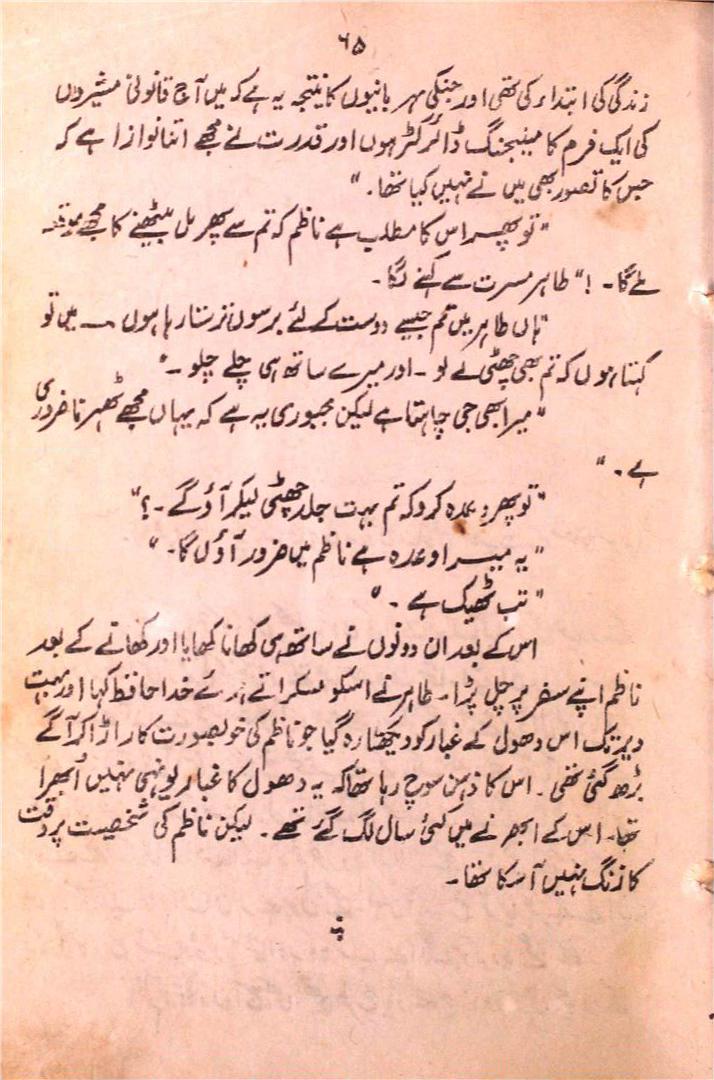 ۶۵
زندگی کی ابتداء کی تھی اور جنکی مہربانیوں کا نتیجہ یہ ہے کہ میں آج قانونی مشیروں
کی ایک فرم کا مینیجنگ ڈائرکٹر ہوں اور قدرت نے مجھے اتنا نوازا ہے کہ
جس کا تصور بھی میں نے نہیں کیا تھا۔"
"تو پھر اس کا مطلب ہے ناظم کہ تم سے پھر مل بیٹھنے کا مجھے موقعہ
ملے گا۔ !" طاہر مسرت سے کہنے لگا۔
"ہاں طاہر میں تم جیسے دوست کے لئے برسوں ترستا رہا ہوں ــ میں تو
کہتا ہوں کہ تم بھی چھٹی لے لو۔ اور میرے ساتھ ہی چلے چلو۔"
"میرا بھی جی چاہتا ہے لیکن مجبوری یہ ہے کہ یہاں مجھے ٹھہرنا ضروری
ہے۔"
"تو پھر وعدہ کرو کہ تم بہت جلد چھٹی لیکر آؤ گے۔؟"
"یہ میرا وعدہ ہے ناظم میں ضرور آؤں گا۔"
"تب ٹھیک ہے۔"
اس کے بعد ان دونوں نے ساتھ ہی کھانا کھایا اور کھانے کے بعد
ناظم اپنے سفر پر چل پڑا۔ طاہر نے اسکو مسکراتے ہوئے خدا حافظ کہا اور بہت
دیر تک اس دھول کے غبار کو دیکھتا رہ گیا جو ناظم کی خوبصورت کار اڑا کر آگے
بڑھ گئی تھی۔ اس کا ذہن سوچ رہا تھا کہ یہ دھول کا غبار یونہی نہیں اُبھرا
تھا۔ اس کے ابھرنے میں کئی سال لگ گئے تھے۔ لیکن ناظم کی شخصیت پر وقت
کا زنگ نہیں آ سکا تھا۔